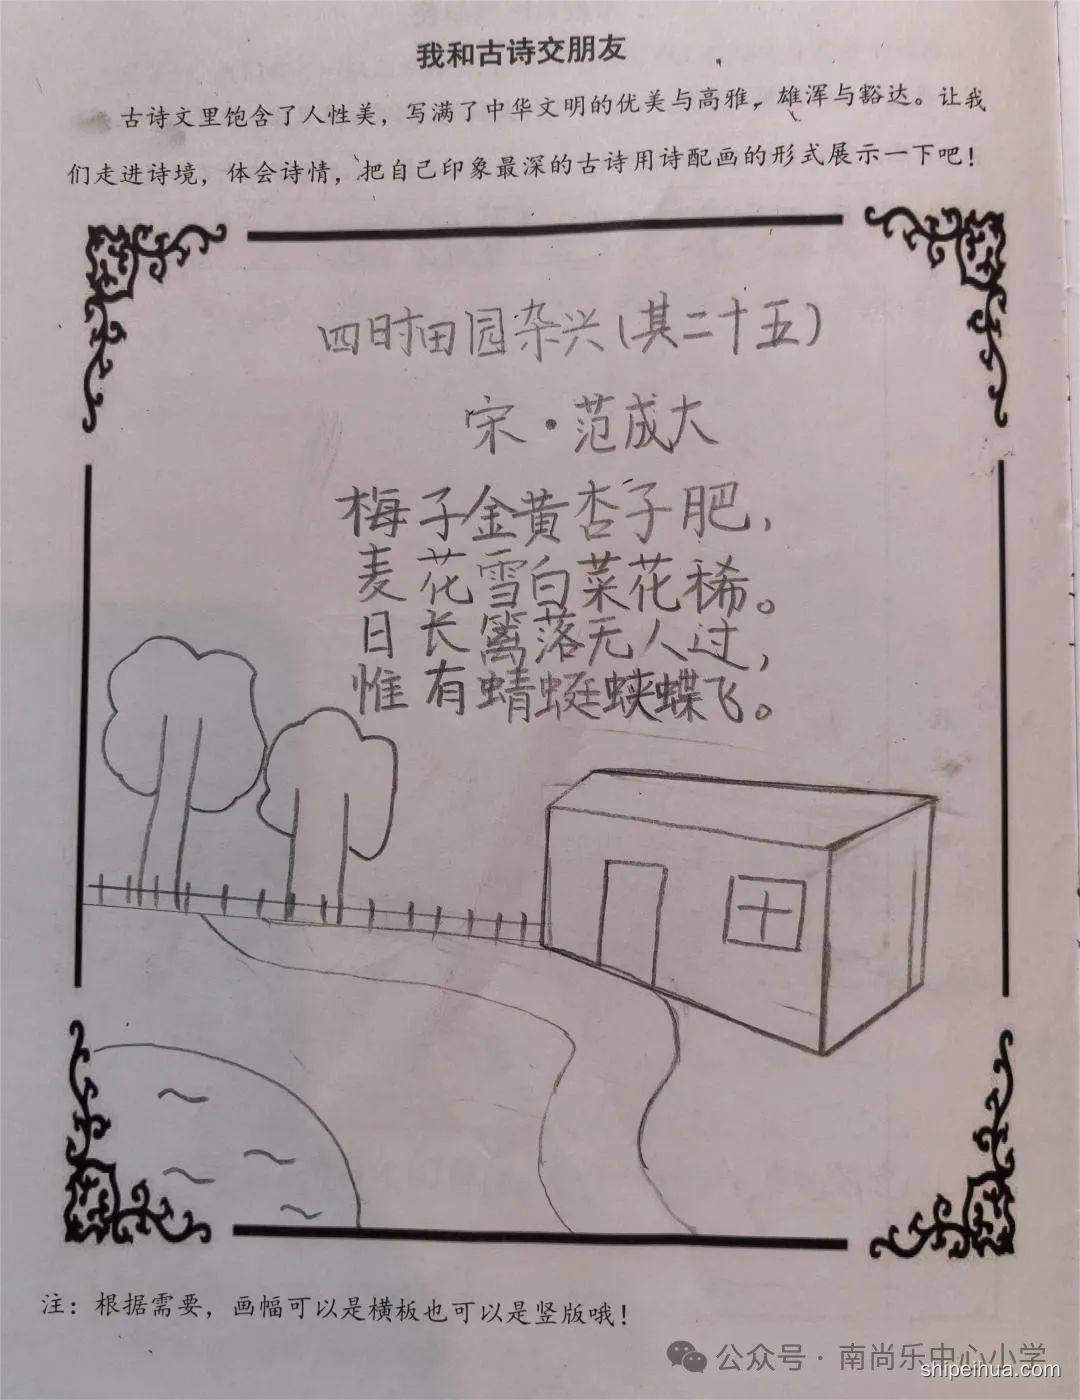 我和古诗交朋友
古诗文里饱含了人性美，写满了中华文明的优美与高雅，雄浑与豁达。让我
们走进诗境，体会诗情，把自己印象最深的古诗用诗配画的形式展示一下吧！
四时田园杂兴（其二十五）
宋·范成大
梅子金黄杏子肥，
麦花雪白菜花稀。
日长篱落无人过，
惟有蜻蜓蛱蝶飞。
注：根据需要，画幅可以是横板也可以是竖版哦！
公众号·南尚乐中心小学
shipeihua.com